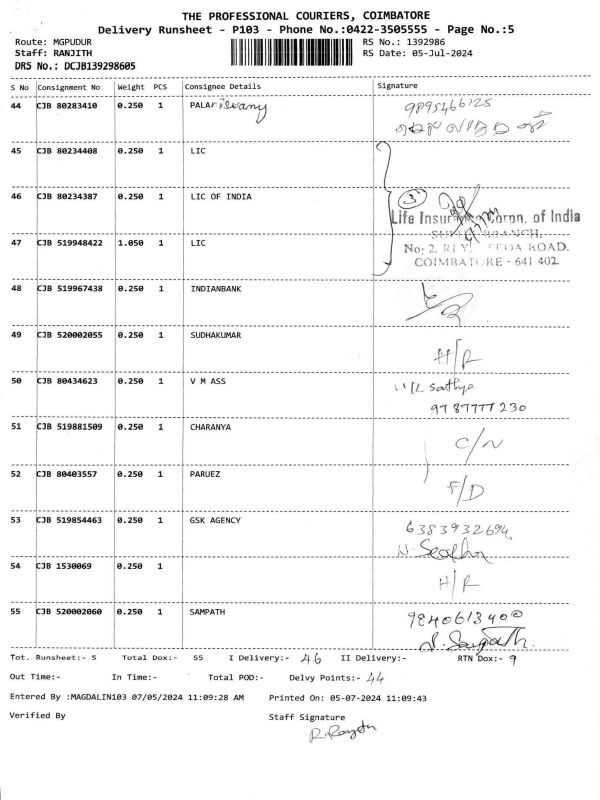 THE PROFESSIONAL COURIERS, COIMBATORE
Delivery Runsheet - P103 - Phone No.:0422-3505555 - Page No.:5
Route: MGPUDUR RS No.: 1392986
Staff: RANJITH RS Date: 05-Jul-2024
DRS No.: DCJB139298605
S No Consignment No Weight PCS Consignee Details Signature
44 CJB 80283410 0.250 1 PALANiswamy 9895466125
45 CJB 80234408 0.250 1 LIC
46 CJB 80234387 0.250 1 LIC OF INDIA 3
Life Insurance Corpn. of India
BRANCH,
47 CJB 519948422 1.050 1 LIC No: 2, ROAD,
COIMBATORE - 641 402
48 CJB 519967438 0.250 1 INDIANBANK
49 CJB 520002055 0.250 1 SUDHAKUMAR H/R
50 CJB 80434623 0.250 1 V M ASS Sathya
9787777230
51 CJB 519881509 0.250 1 CHARANYA C/N
52 CJB 80403557 0.250 1 PARUEZ F/D
53 CJB 519854463 0.250 1 GSK AGENCY 6383932694
54 CJB 1530069 0.250 1 H/R
55 CJB 520002060 0.250 1 SAMPATH 9840613400
N. Sampath.
Tot. Runsheet:- 5 Total Dox:- 55 I Delivery:- 46 II Delivery:- RTN Dox:- 9
Out Time:- In Time:- Total POD:- Delvy Points:- 44
Entered By :MAGDALIN103 07/05/2024 11:09:28 AM Printed On: 05-07-2024 11:09:43
Verified By Staff Signature